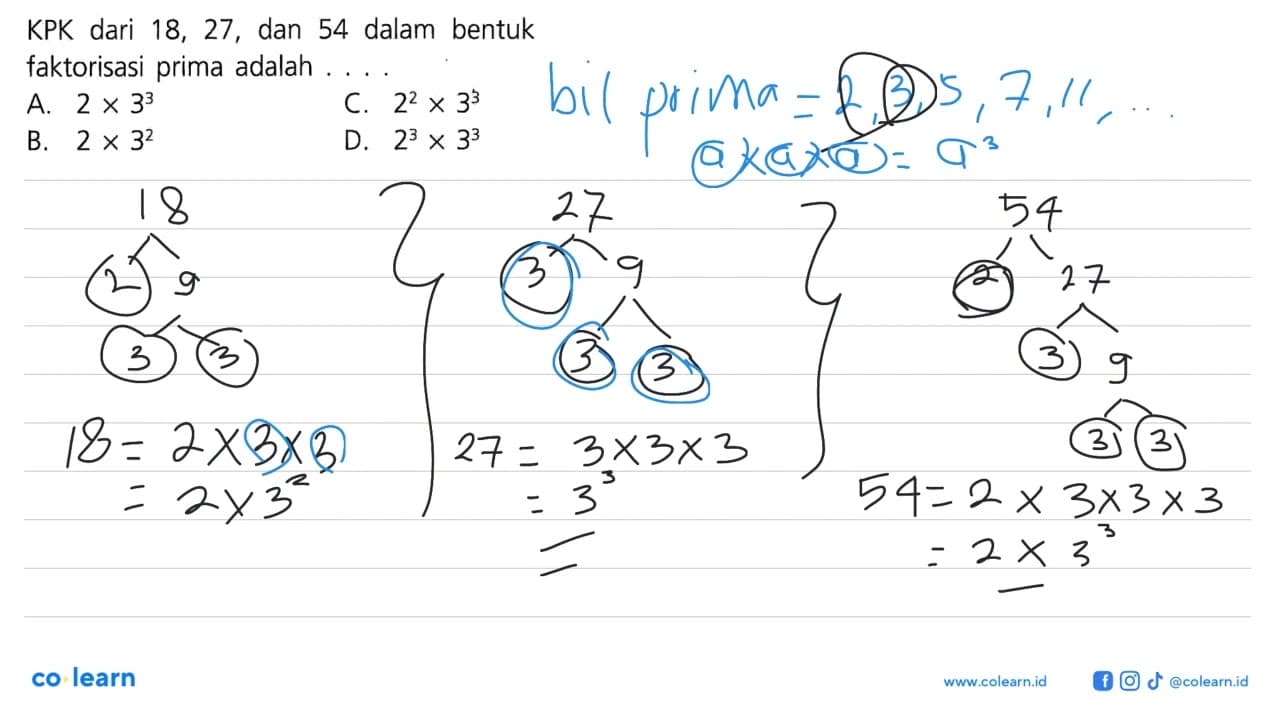 KPK dari 18, 27, dan 54 dalam bentuk
faktorisasi prima adalah . . . .
A. 2 × 3³ C. 2² × 3³
B. 2 × 3² D. 2³ × 3³
bil prima = 2, 3, 5, 7, 11, ...
a × a × a = a³
18 27 54
2 9 3 9 2 27
3 3 3 3 3 9
3 3
18 = 2 × 3 × 3
= 2 × 3²
27 = 3 × 3 × 3
= 3³
54 = 2 × 3 × 3 × 3
= 2 × 3³
co learn
www.colearn.id @colearn.id